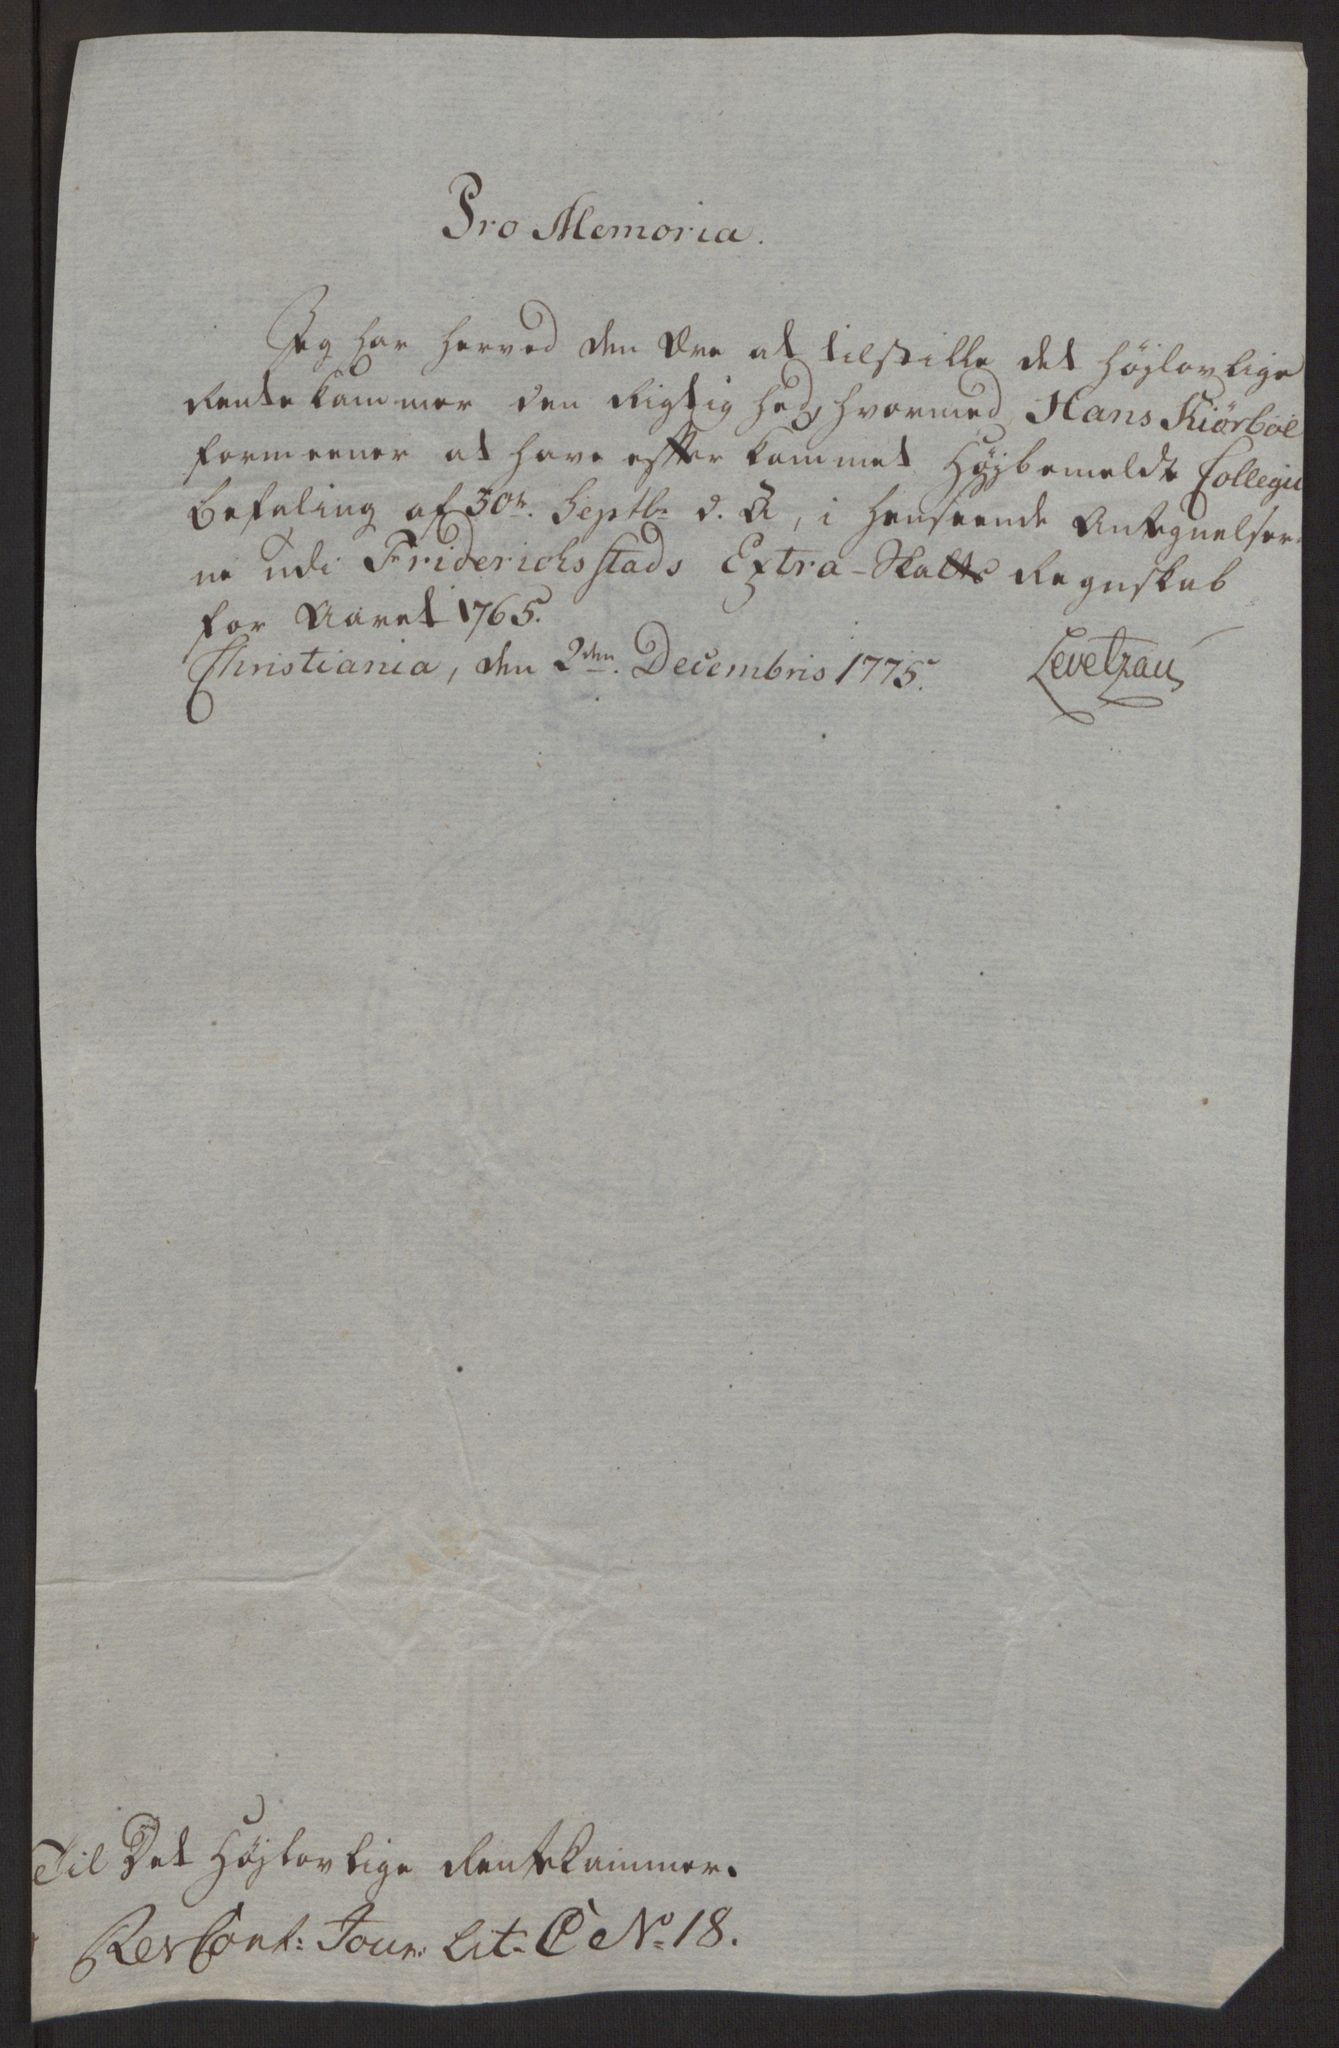 Pro Memoria.
Jeg har herved den Ære at tilstille det höjlovlige
Rentekammer den Rigtighed, hvormed Hans Kiörboe
formeener at have efterkommet Höjbemeldte Collegii
Befaling af 30te. Septbr d. A, i henseende Antegnelser-
ne udi Friderichsstads Extra-Skatts Regnskab
for Aaret 1765.
Christiania, den 2den. Decembris 1775. Levetzau
Til Det Höjlovlige Rentekammer.
Rev Cont: Jour: Lit. C No 18.